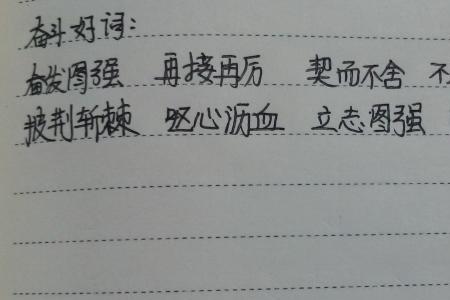 奋斗好词:
奋发图强 再接再厉 契而不舍 不
披荆斩棘 呕心沥血 立志图强